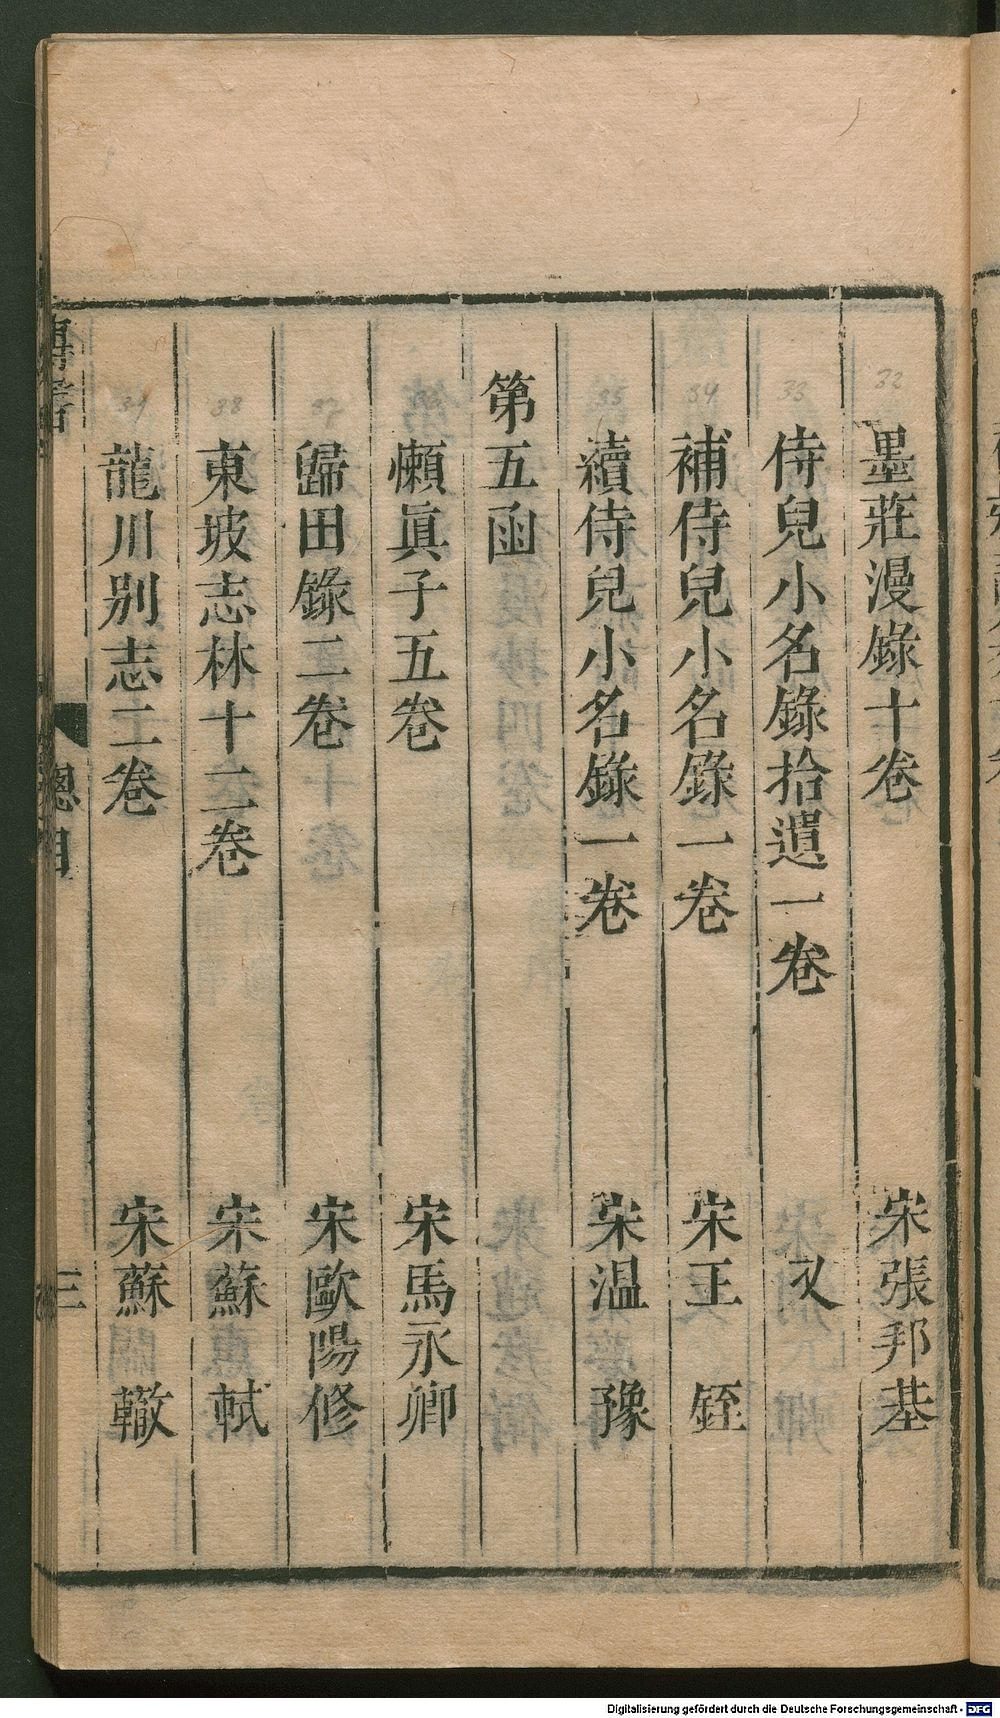 墨莊漫錄十卷 宋張邦基
侍兒小名錄拾遺一卷 又
補侍兒小名錄一卷 宋王 銍
續侍兒小名錄一卷 宋溫 豫
第五函
懶眞子五卷 宋馬永卿
歸田錄二卷 宋歐陽修
東坡志林十二卷 宋蘇 軾
龍川别志二卷 宋蘇 轍
總目
三
32
33
34
35
36
37
38
39
Digitalisierung gefördert durch die Deutsche Forschungsgemeinschaft - DFG